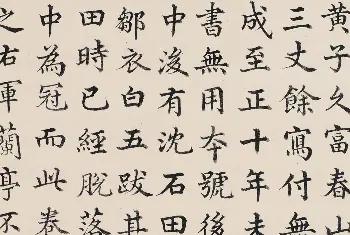 黄子久富春山
三丈餘寫付無
成至正十年未
書無用夲號後
中後有沈石田
鄒衣白五跋其
田時已經脫落
中為冠而此卷
之右軍蘭亭不